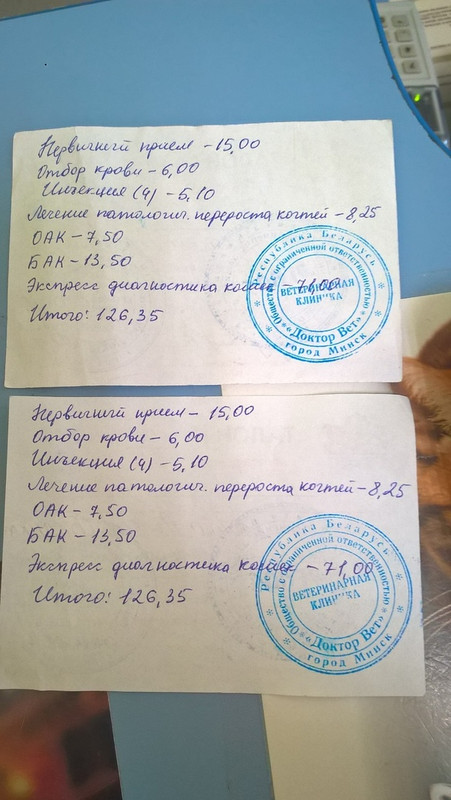 Первичный прием - 15,00
Отбор крови - 6,00
Инъекция (4) - 5,10
Лечение патологич. перероста когтей - 8,25
ОАК - 7,50
БАК - 13,50
Экспресс диагностика кошек - 71,00
Итого: 126,35
Республика Беларусь
Общество с ограниченной ответственностью
ВЕТЕРИНАРНАЯ
КЛИНИКА
«Доктор Вет»
город Минск
Первичный прием - 15,00
Отбор крови - 6,00
Инъекция (4) - 5,10
Лечение патологич. перероста когтей - 8,25
ОАК - 7,50
БАК - 13,50
Экспресс диагностика кошек - 71,00
Итого: 126,35
Республика Беларусь
Общество с ограниченной ответственностью
ВЕТЕРИНАРНАЯ
КЛИНИКА
«Доктор Вет»
город Минск